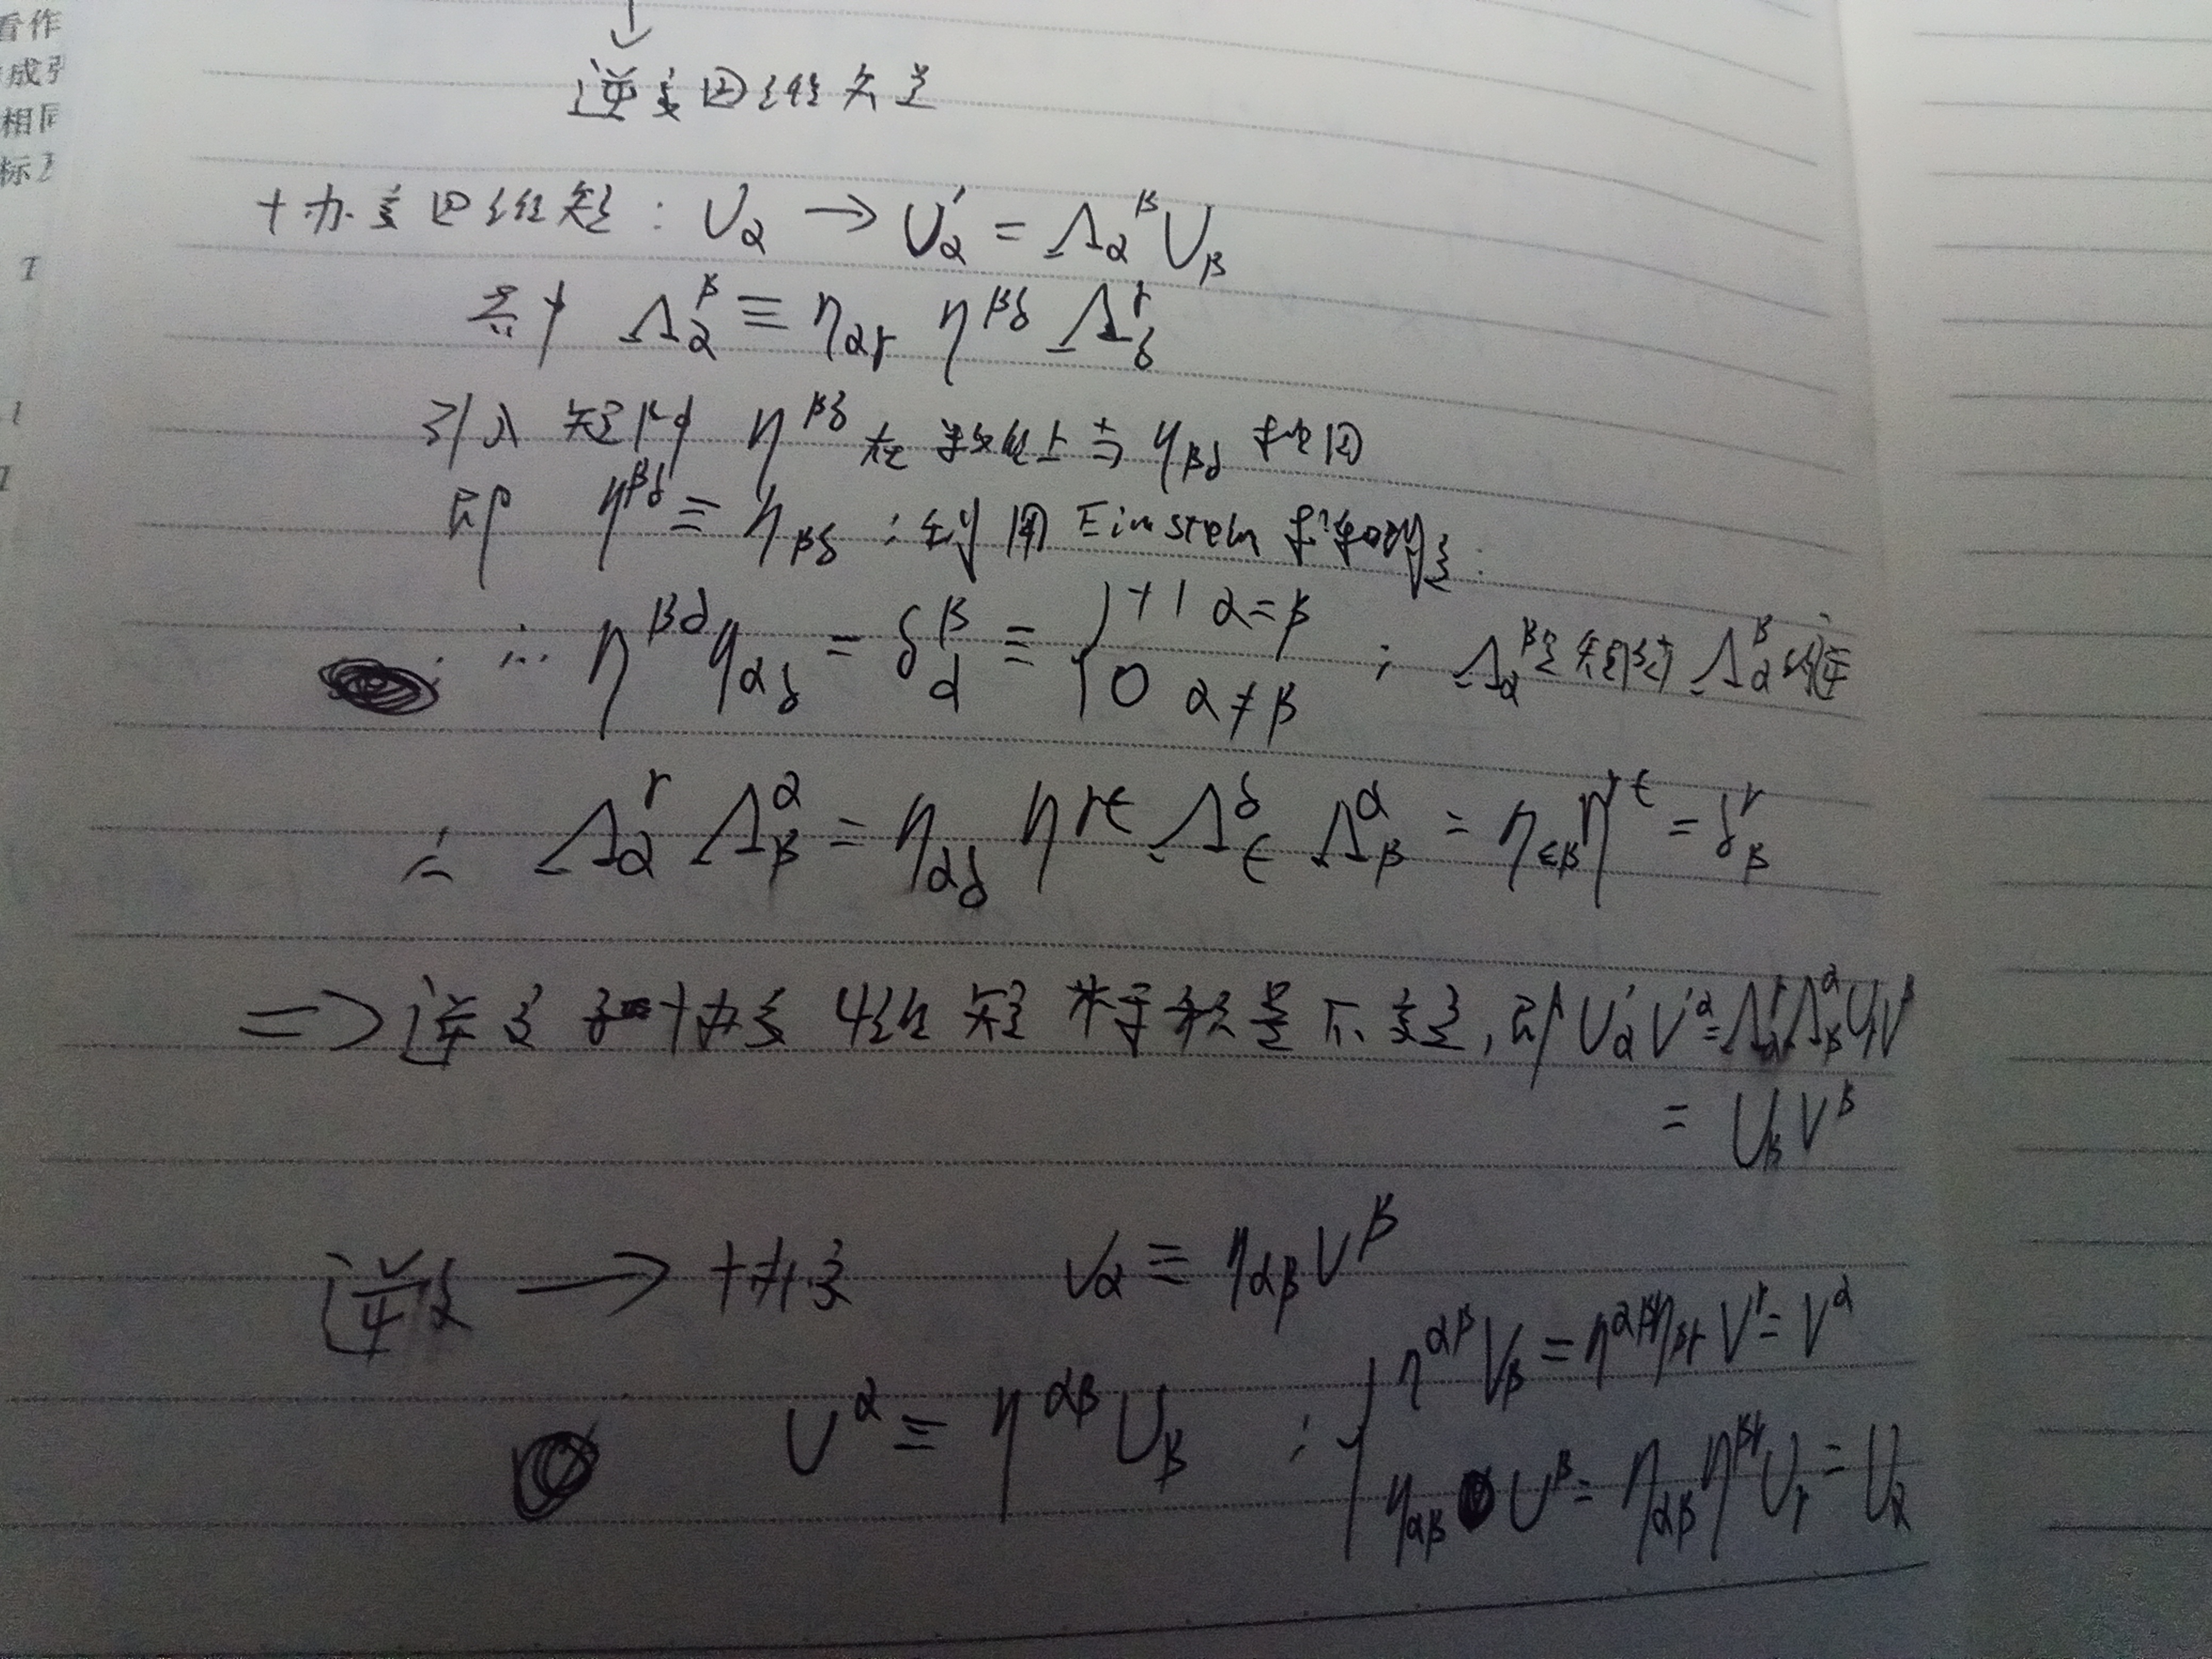 看作
成引
相同
标
↓
逆变四维矢量
协变四维矢量: U_α → U'_α = Λ_α^β U_β
其中 Λ_α^β ≡ η_αγ η^βδ Λ^γ_δ
引入矩阵 η^βδ 在数值上与 η_βδ 相同
即 η^βδ ≡ η_βδ ;利用 Einstein 求和约定:
∴ η^βδ η_αδ = δ^β_α ≡ { +1 α=β ; Λ_α^β是矩阵 Λ^β_α 的逆
0 α≠β
∴ Λ_α^γ Λ^α_β = η_αδ η^γε Λ^δ_ε Λ^α_β = η_εβ η^γε = δ^γ_β
⇒ 逆变和协变4维矢量标积是不变量, 即 U'_α V'^α = Λ_α^γ Λ^α_β U_γ V^β
= U_β V^β
逆变 → 协变 V_α ≡ η_αβ V^β
η^αβ V_β = η^αβ η_βγ V^γ = V^α
U^α ≡ η^αβ U_β : {
η_αβ U^β = η_αβ η^βγ U_γ = U_α